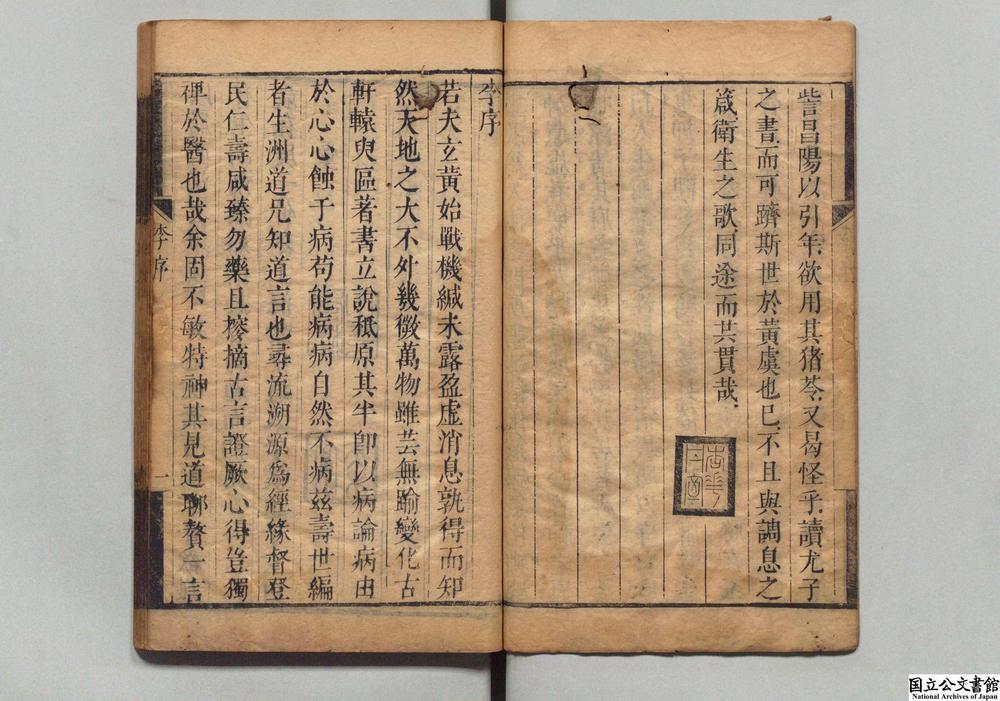 訾昌陽以引年欲用其猪苓又曷怪乎讀尤子
之書而可躋斯世於黃虞也已不且與調息之
箴衛生之歌同途而共貫哉
李序
若夫玄黃始戰機緘未露盈虛消息孰得而知
然天地之大不外幾微萬物雖芸無踰變化古
軒轅臾區著書立說秪原其半卽以病論病由
於心心蝕于病苟能病病自然不病茲壽世編
者生洲道兄知道言也尋流溯源爲經緣督登
民仁壽咸臻勿藥且摉摘古言證厥心得豈獨
裨於醫也哉余固不敏特神其見道聊贅一言
李序
一
国立公文書館
National Archives of Japan